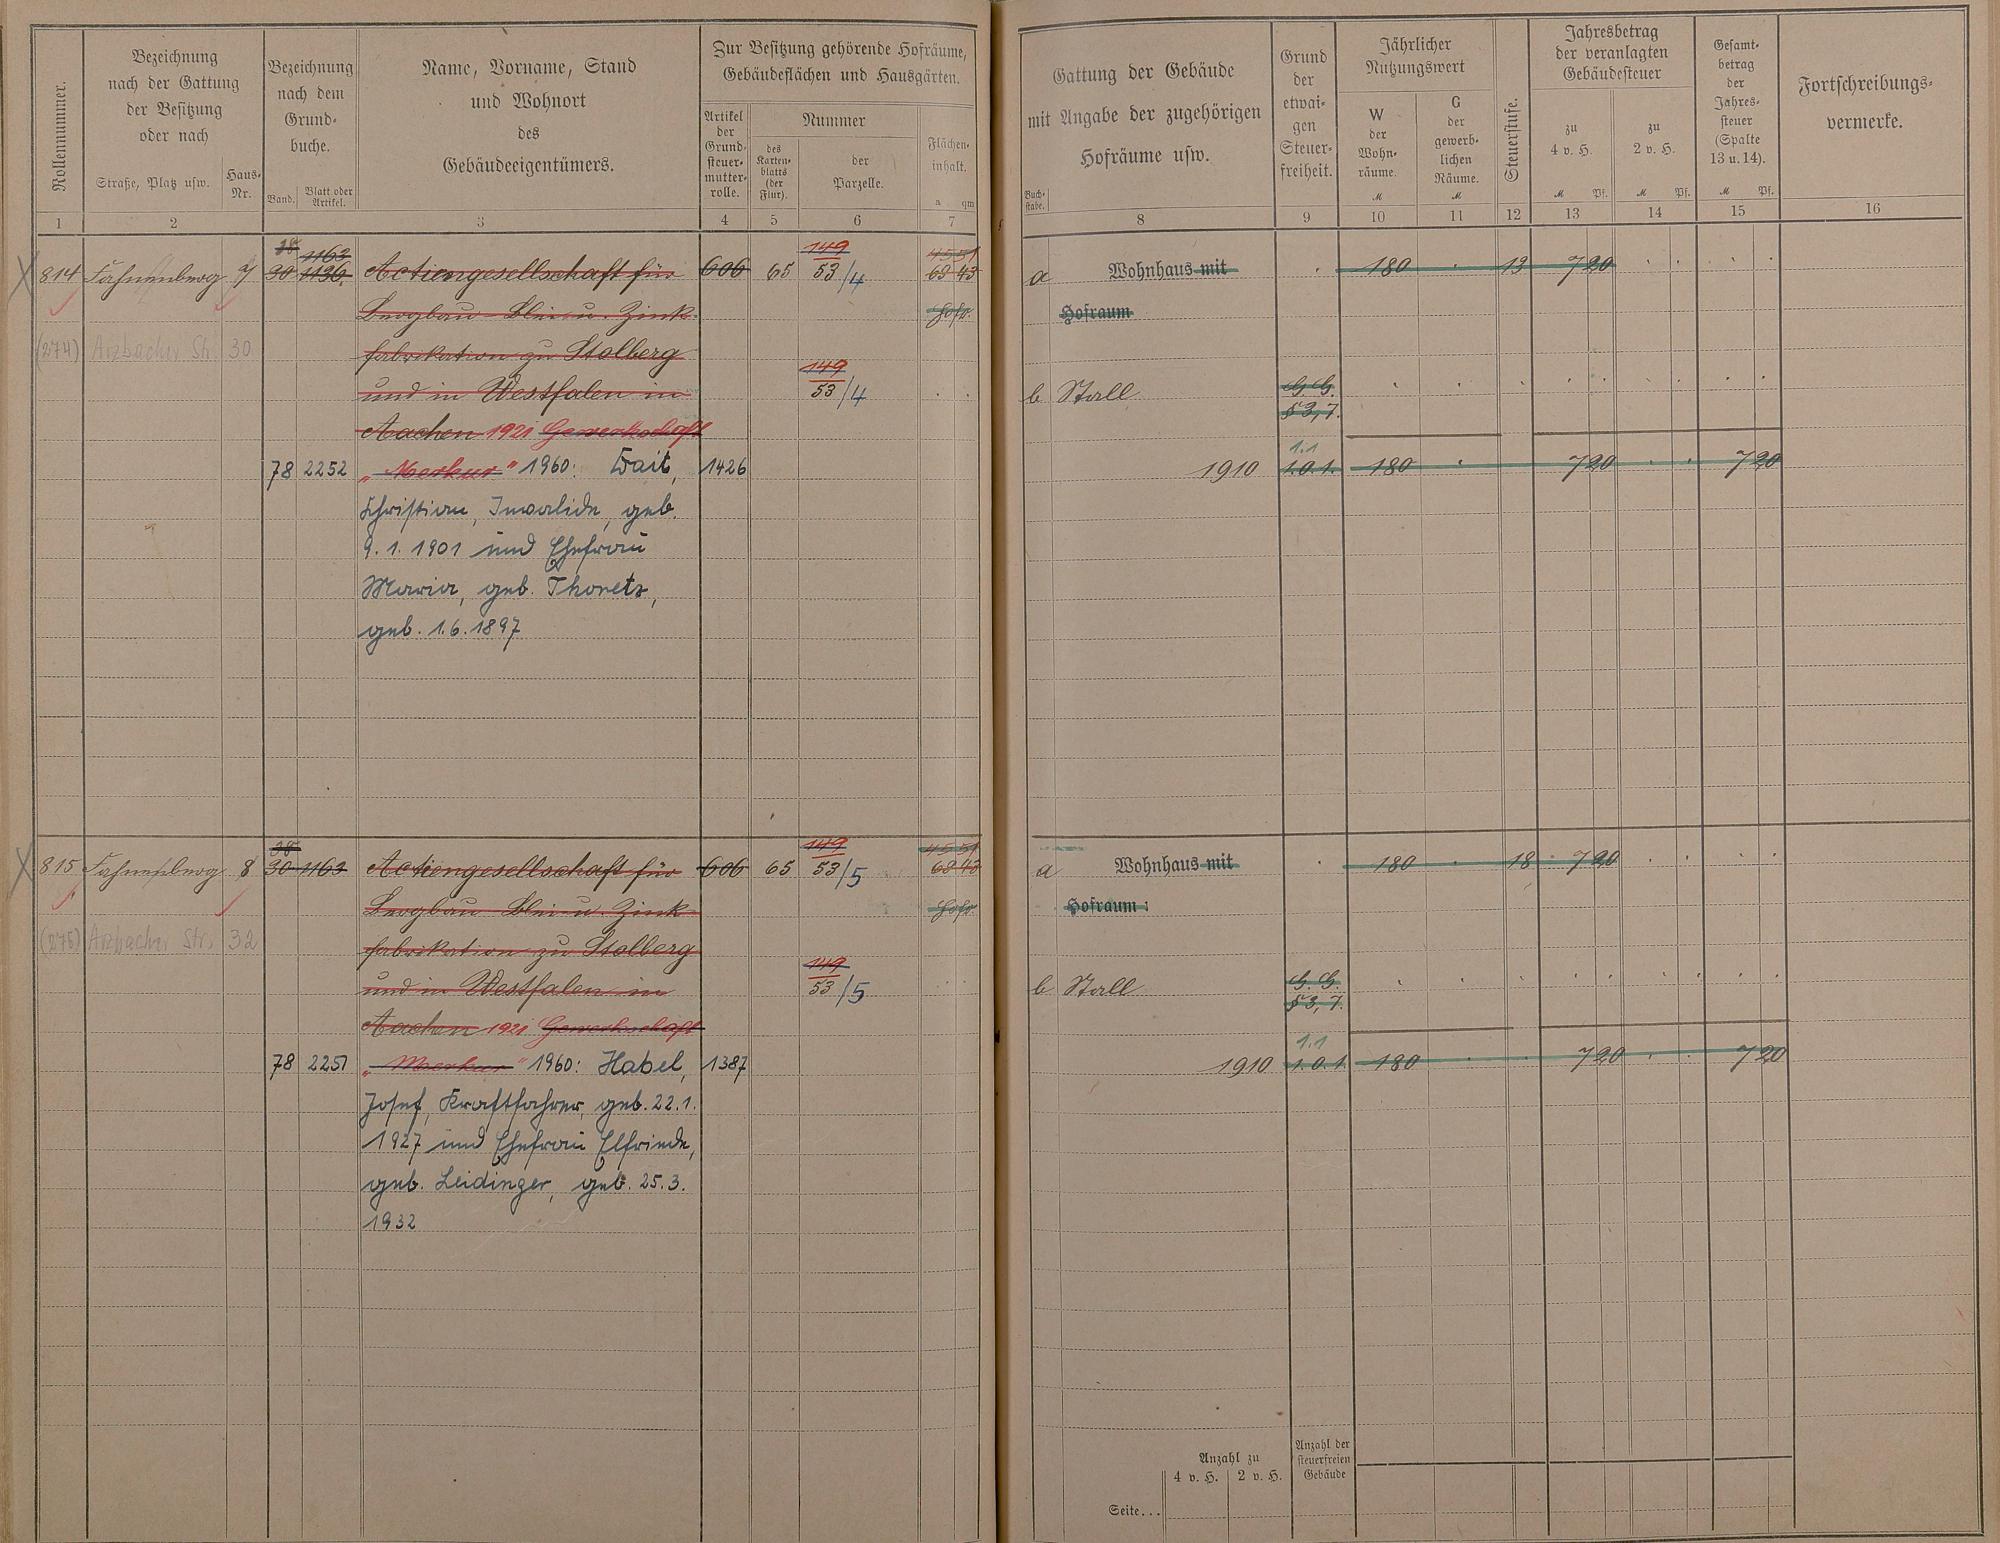 Rollennummer.
Bezeichnung
nach der Gattung
der Besitzung
oder nach
Straße, Platz usw.
Haus-
Nr.
Bezeichnung
nach dem
Grund-
buche.
Band.
Blatt oder
Artikel.
Name, Vorname, Stand
und Wohnort
des
Gebäudeeigentümers.
Zur Besitzung gehörende Hofräume,
Gebäudeflächen und Hausgärten.
Artikel
der
Grund-
steuer-
mutter-
rolle.
Nummer
des
Karten-
blatts
(der
Flur).
der
Parzelle.
Flächen-
inhalt.
a qm
1 2 3 4 5 6 7
1163
814 Fahnenberg 7 30 1136. Actiengesellschaft für 606 65 149/53/4 45 51
63 43
Bergbau- Blei- u. Zink- Hofr.
(274) Arzbacher Str. 30 fabrikation zu Stolberg
und in Westfalen in 149/53/4
Aachen 1921 Gewerkschaft
78 2252 „Merkur" 1960: Wait, 1426
Christian, Invalide, geb.
9.1.1901 und Ehefrau
Maria, geb. Thonets,
geb. 1.6.1897
38
815 Fahnenberg 8 30 1163 Actiengesellschaft für 606 65 149/53/5 45 51
63 43
Bergbau- Blei- u. Zink- Hofr.
(275) Arzbacher Str. 32 fabrikation zu Stolberg
und in Westfalen in 149/53/5
Aachen 1921 Gewerkschaft
78 2251 „Merkur" 1960: Habel, 1387
Josef, Kraftfahrer, geb. 22.1.
1927 und Ehefrau Elfriede,
geb. Leidinger, geb. 25.3.
1932
Gattung der Gebäude
mit Angabe der zugehörigen
Hofräume usw.
Buch-
stabe.
Grund
der
etwai-
gen
Steuer-
freiheit.
Jährlicher
Nutzungswert
W
der
Wohn-
räume.
M
G
der
gewerb-
lichen
Räume.
M
Steuerstufe.
Jahresbetrag
der veranlagten
Gebäudesteuer
zu
4 v. H.
M Pf.
zu
2 v. H.
M Pf.
Gesamt-
betrag
der
Jahres-
steuer
(Spalte
13 u. 14).
M Pf.
Fortschreibungs-
vermerke.
8 9 10 11 12 13 14 15 16
a Wohnhaus mit 180 13 7 20
Hofraum
b Stall G. G.
§ 3, 7.
1.1
1910 1.0.1. 180 7 20 7 20
a Wohnhaus mit 180 18 7 20
Hofraum :
b Stall G. G.
§ 3, 7.
1.1
1910 1.0.1. 180 7 20 7 20
Anzahl zu
4 v. H. 2 v. H.
Anzahl der
steuerfreien
Gebäude
Seite...